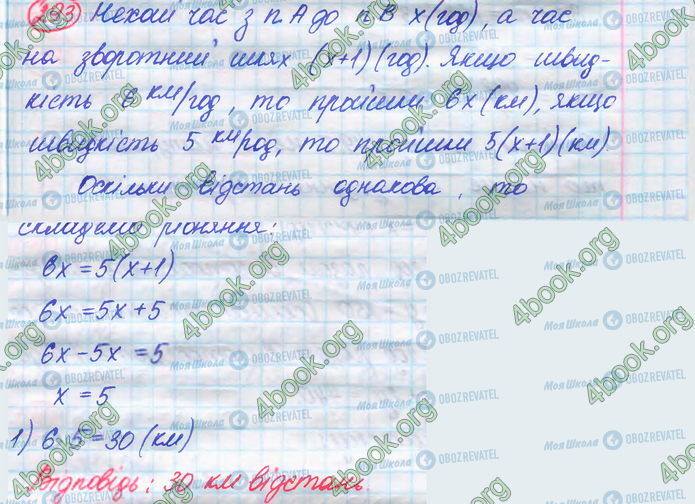 283) Нехай час з п А до п В х(год), а час
на зворотний шлях (х+1)(год). Якщо швид-
кість 6 км/год, то пройшли 6х(км), якщо
швидкість 5 км/год, то пройшли 5(х+1)(км)
Оскільки відстань однакова, то
складемо рівняння:
6х = 5(х+1)
6х = 5х+5
6х-5х = 5
х = 5
1) 6·5=30 (км)
Відповідь: 30 км відстань.